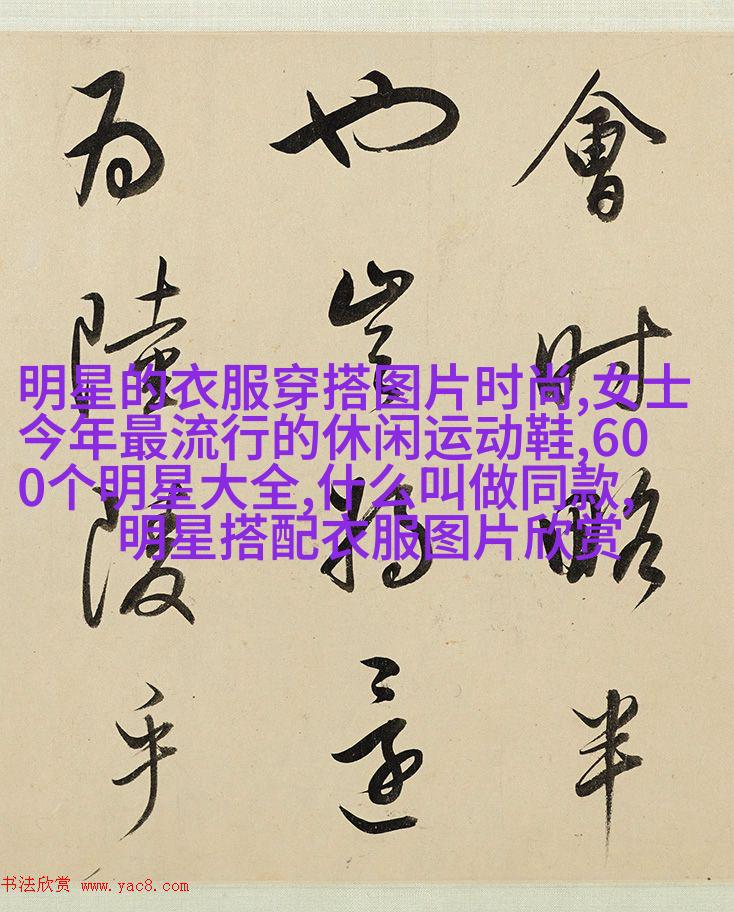 會時略半
也豈將還
為陸陵乎
明星的衣服穿搭图片时尚,女士
今年最流行的休闲运动鞋,60
0个明星大全,什么叫做同款,
明星搭配衣服图片欣赏
书法欣赏 www.yac8.com